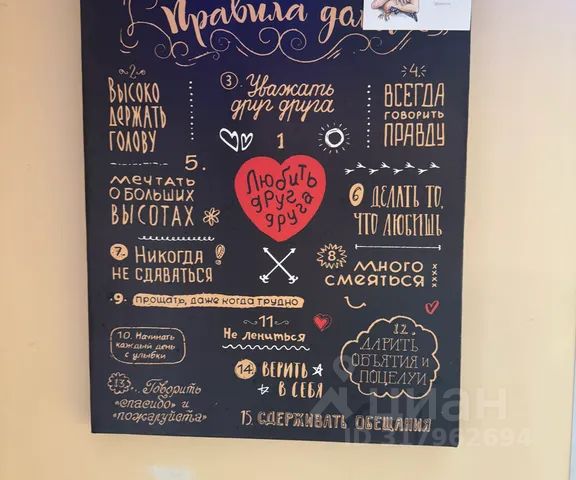 Правила дома
2.
Высоко
держать
голову
3. Уважать
друг друга
4.
Всегда
говорить
правду
1
Любить
друг
друга
5.
мечтать
о больших
высотах
6 делать то,
что любишь
7. Никогда
не сдаваться!
8 много
смеяться
9. прощать, даже когда трудно
10. Начинать
каждый день
с улыбки
11
Не лениться
12.
Дарить
объятия и
поцелуи
13. Говорить
«спасибо» и
«пожалуйста»
14 верить
в себя
15. сдерживать обещания
циан
ID 317962694